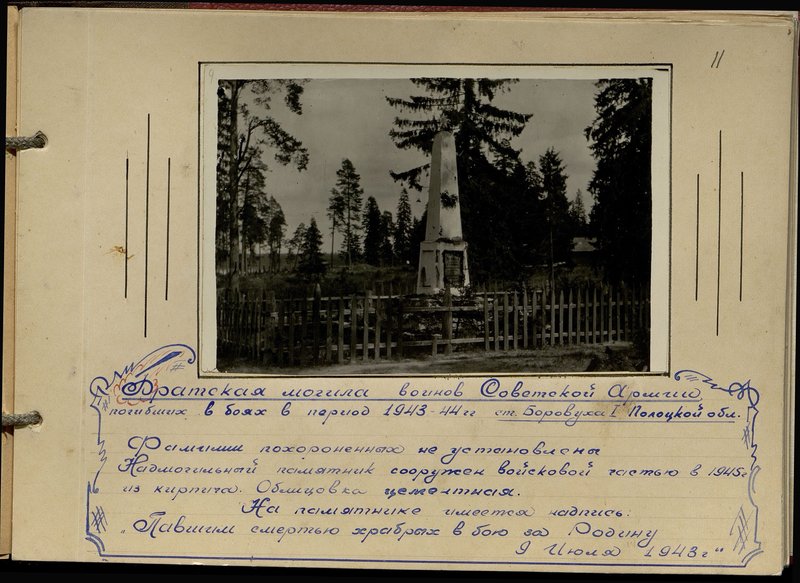 11
Братская могила воинов Советской Армии
погибших в боях в период 1943-44гг ст. Боровуха I Полоцкой обл.
Фамилии похороненных не установлены
Надмогильный памятник сооружен войсковой частью в 1945г
из кирпича. Облицовка цементная.
На памятнике имеется надпись:
„Павшим смертью храбрых в бою за Родину
9 Июля 1943г"